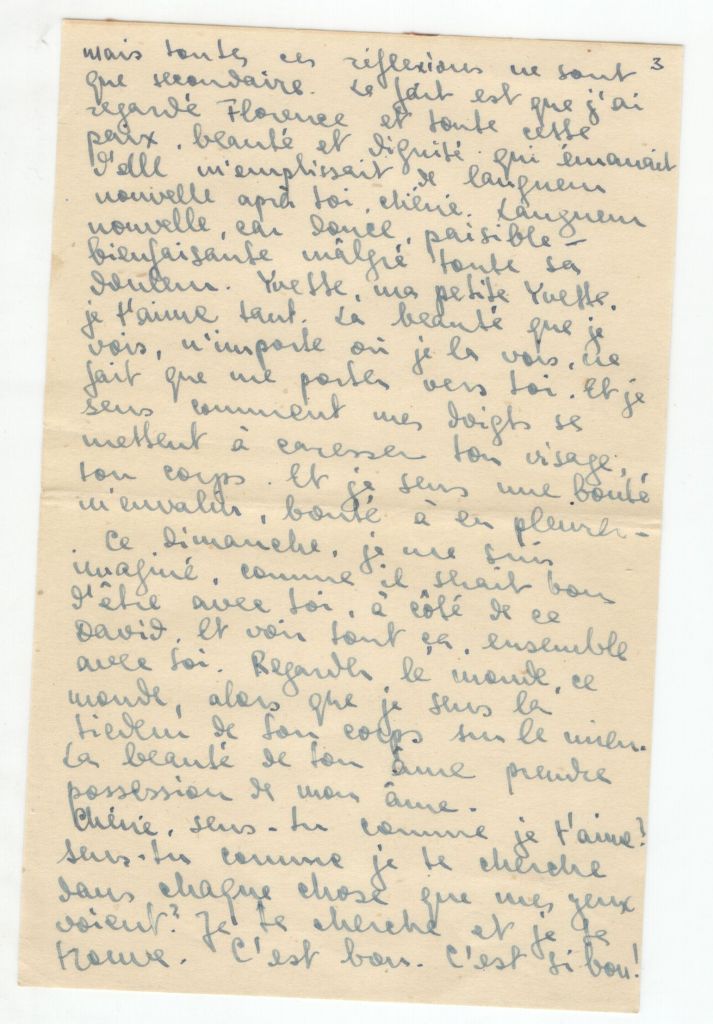 3
mais toutes ces réflexions ne sont
que secondaire. Le fait est que j'ai
regardé Florence et toute cette
paix, beauté et dignité qui émanait
d'elle m'emplissait de langueur
nouvelle après toi, chérie. Langueur
nouvelle, car douce, paisible –
bienfaisante mâlgré toute sa
douleur. Yvette, ma petite Yvette,
je t'aime tant. La beauté que je
vois, n'importe où je la vois, ne
fait que me porter vers toi. Et je
sens comment mes doigts se
mettent à caresser ton visage,
ton corps. Et je sens une bonté
m'envahir, bonté à en pleurer –
Ce dimanche, je me suis
imaginé, comme il serait bon
d'être avec toi, à côté de ce
David. Et voir tout ça, ensemble
avec toi. Regarder le monde, ce
monde, alors que je sens la
tiedeur de ton corps sur le mien.
La beauté de ton âme prendre
possession de mon âme.
Chérie, sens-tu comme je t'aime?
sens-tu comme je te cherche
dans chaque chose que mes yeux
voient? Je te cherche et je te
trouve. C'est bon. C'est si bon!